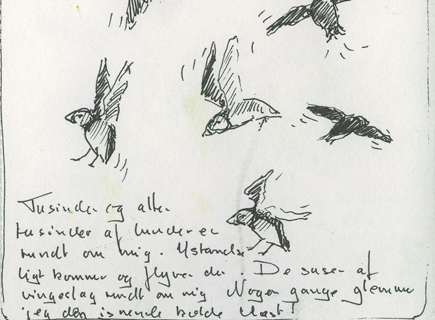 Tusinder og atter
tusinder af lunder er
rundt om mig. Ustandse
ligt kommer og flyver de. De suser af
vingeslag rundt om mig Nogen gange glemmer
jeg den isnende kolde blæst!